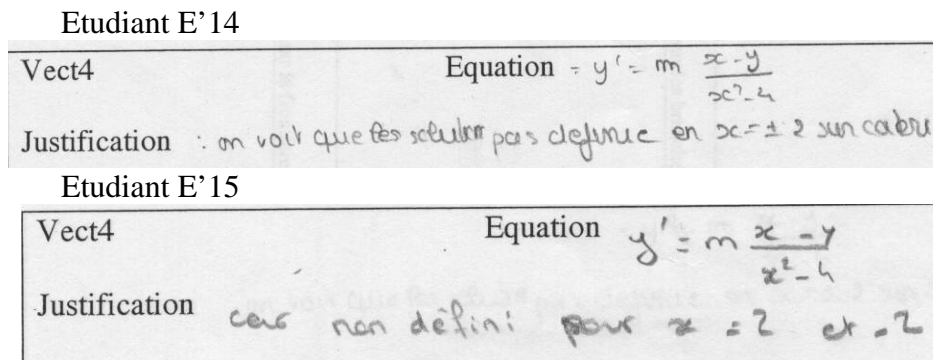 Etudiant E'14
Vect4 Equation = y' = m (x-y)/(x²-4)
Justification : on voit que les solution pas definie en x = ± 2 sur cabri
Etudiant E'15
Vect4 Equation y' = m (x-y)/(x²-4)
Justification car non défini pour x = 2 et -2